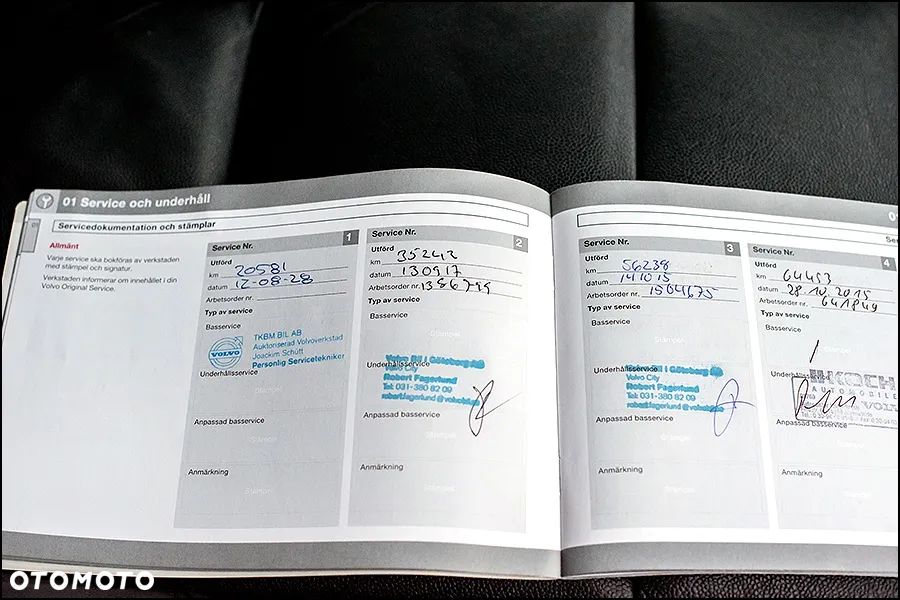 01 Service och underhåll
Servicedokumentation och stämplar
Allmänt
Varje service ska bokföras av verkstaden
med stämpel och signatur.
Verkstaden informerar om innehållet i din
Volvo Original Service.
Service Nr. 1
Utförd
km 20581
datum 12-08-28
Arbetsorder nr.
Typ av service
Basservice
VOLVO
TKBM BIL AB
Auktoriserad Volvoverkstad
Joackim Schütt
Personlig Servicetekniker
Underhållsservice
Stämpel
Anpassad basservice
Stämpel
Anmärkning
Stämpel
Service Nr. 2
Utförd
km 35243
datum 130917
Arbetsorder nr.
Typ av service
Basservice
Stämpel
Volvo Bil i Göteborg AB
Underhållsservice
Volvo City
Robert Fagerlund
Tel: 031-380 82 09
Anpassad basservice
Stämpel
Anmärkning
Stämpel
Service Nr. 3
Utförd
km 56238
datum 141015
Arbetsorder nr. 1564675
Typ av service
Basservice
Stämpel
Underhållsservice
Bil i Göteborg AB
Volvo City
Robert Fagerlund
Tel: 031-380 82 09
Anpassad basservice
Stämpel
Anmärkning
Stämpel
Service Nr. 4
Utförd
km 64453
datum 28.10.2015
Arbetsorder nr. 641849
Typ av service
Basservice
Underhållsservice
Anpassad basservice
Stämpel
Anmärkning
OTOMOTO